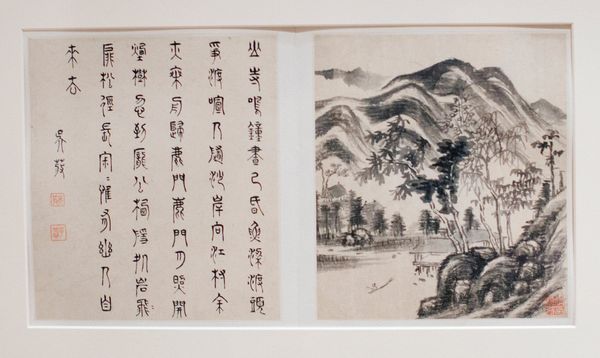 山寺鳴鐘晝已昏漁梁渡頭
爭渡喧人隨沙岸向江村余
亦乘舟歸鹿門鹿門月照開
煙樹忽到龐公棲隱処岩飛
扉松徑長寂〻惟有幽人自
來去
吳